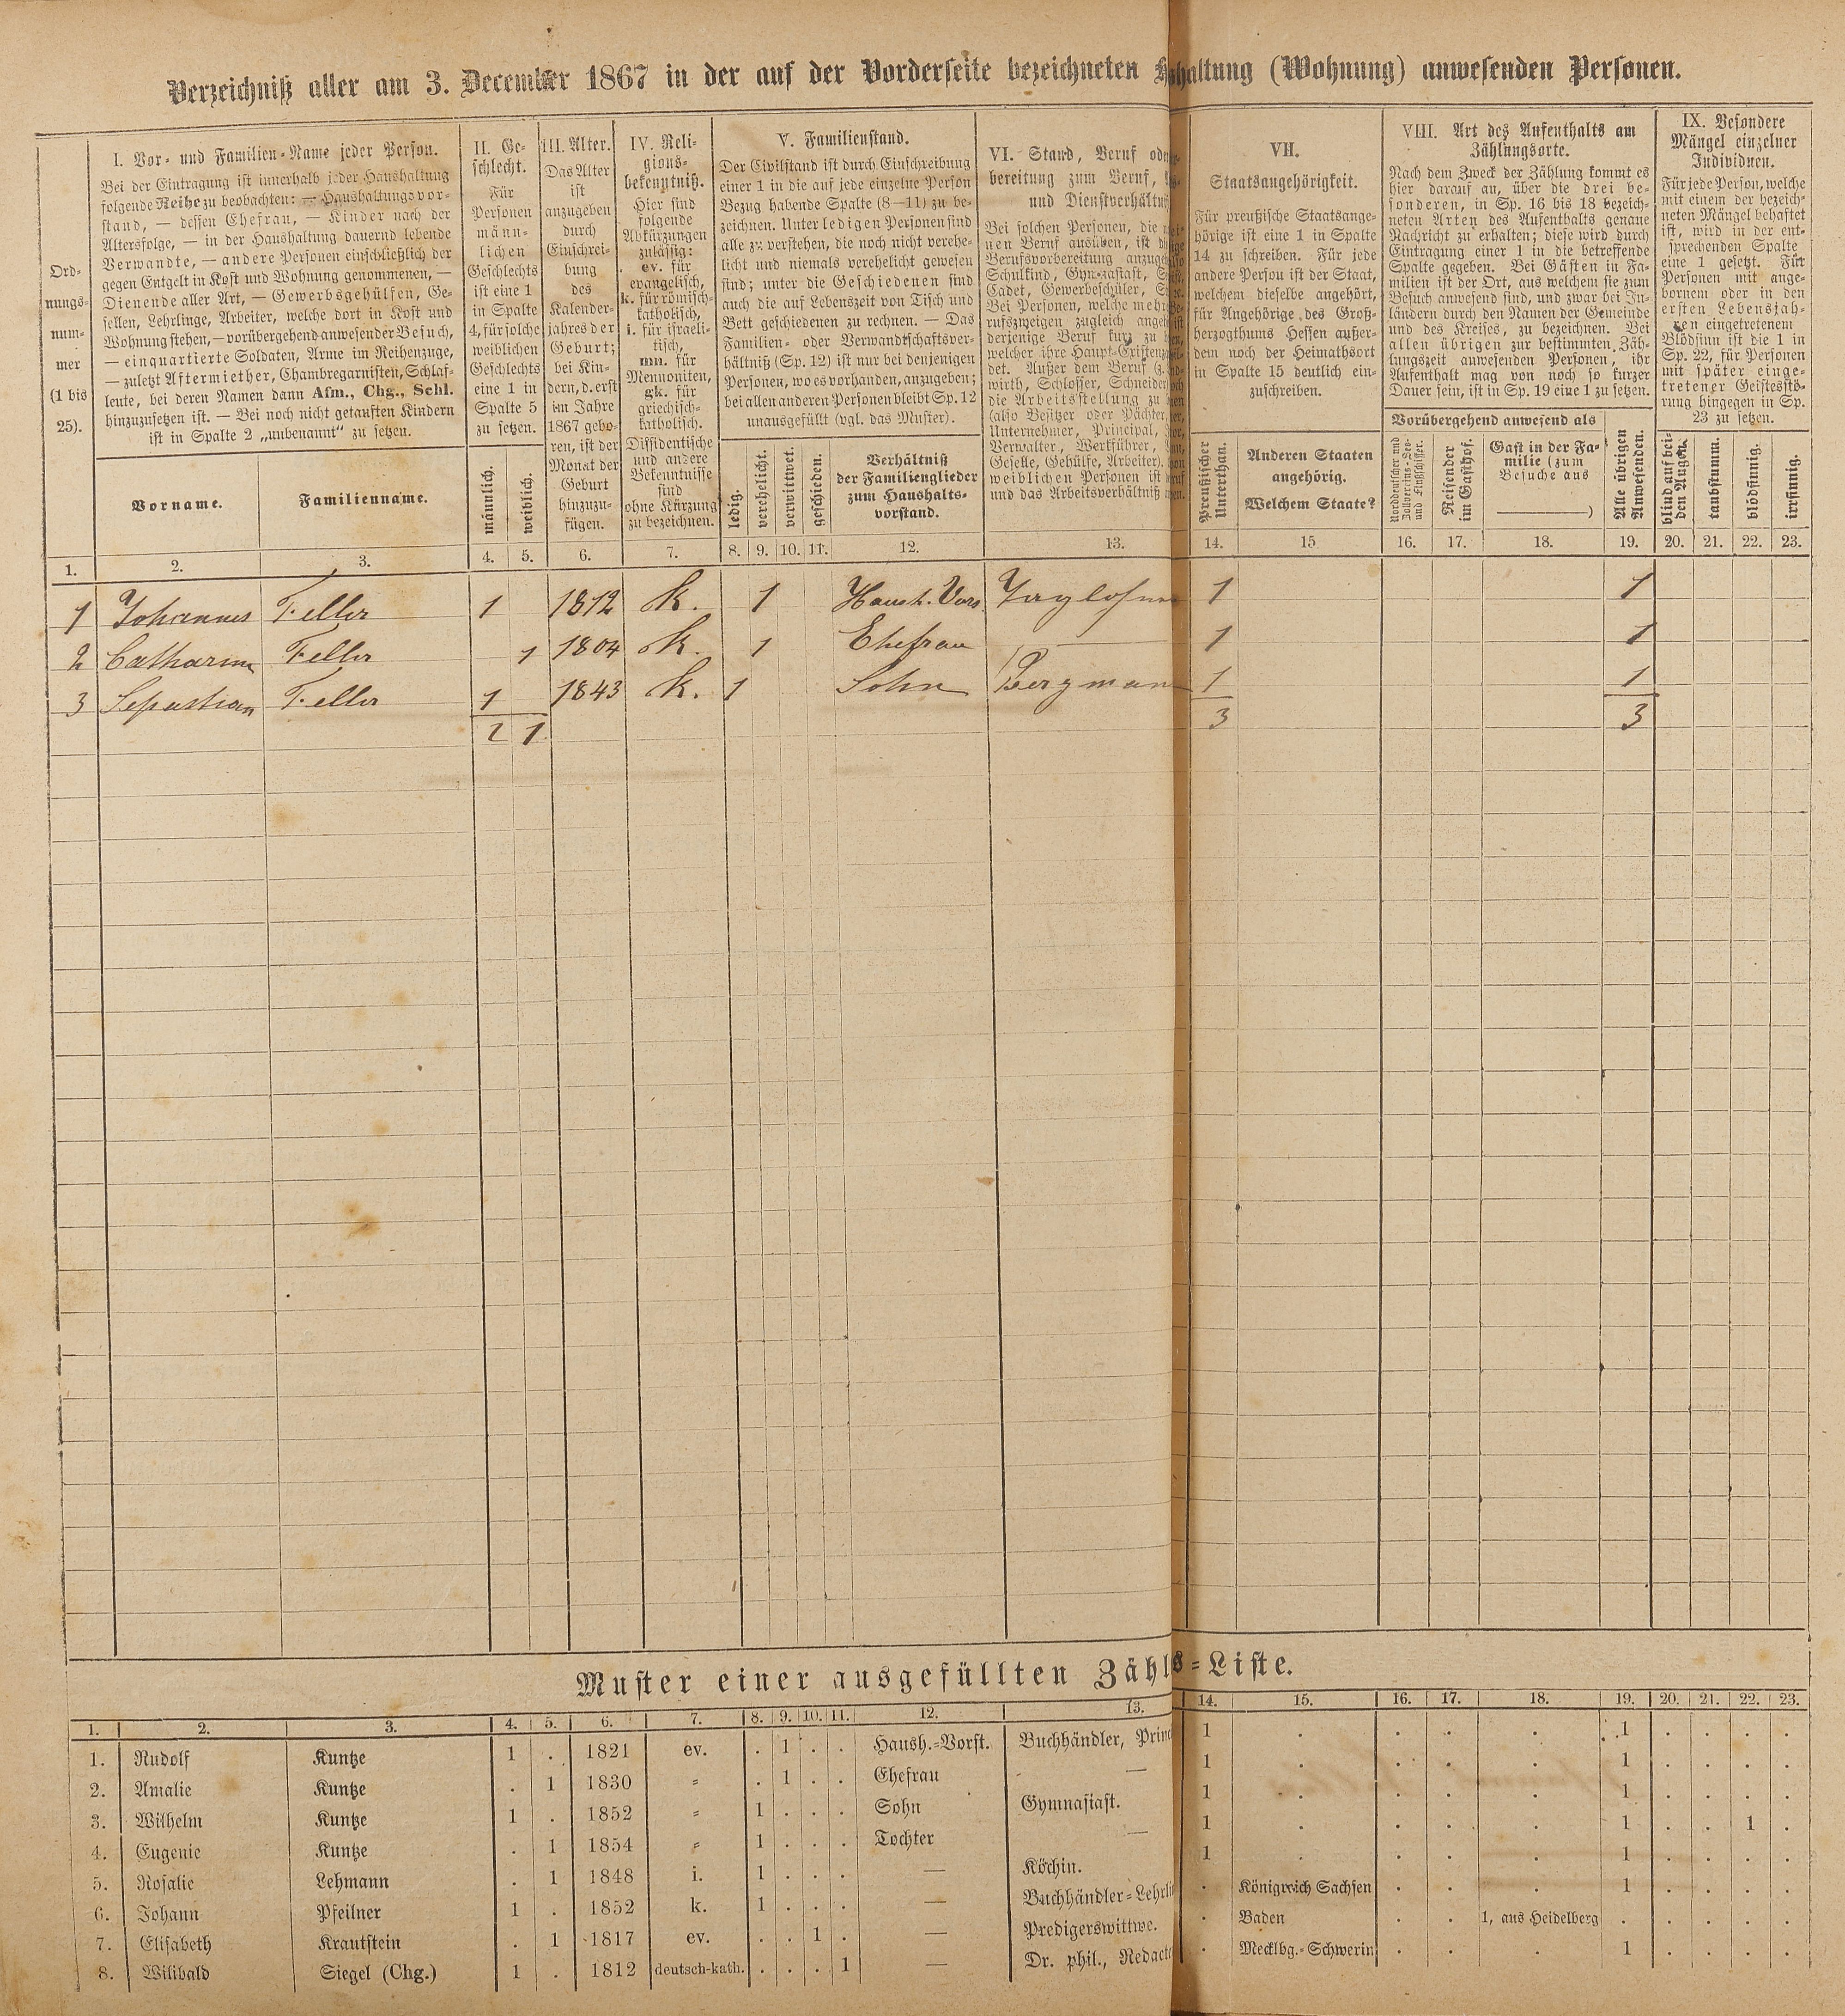 Verzeichniß aller am 3. December 1867 in der auf der Vorderseite bezeichneten haltung (Wohnung) anwesenden Personen.
Ord-
nungs-
num-
mer
(1 bis
25).
I. Vor- und Familien-Name jeder Person.
Bei der Eintragung ist innerhalb jeder Haushaltung
folgende Reihe zu beobachten: — Haushaltungsvor-
stand, — dessen Ehefrau, — Kinder nach der
Altersfolge, — in der Haushaltung dauernd lebende
Verwandte, — andere Personen einschließlich der
gegen Entgelt in Kost und Wohnung genommenen, —
Dienende aller Art, — Gewerbsgehülfen, Ge-
sellen, Lehrlinge, Arbeiter, welche dort in Kost und
Wohnung stehen, — vorübergehend anwesender Besuch,
— einquartierte Soldaten, Arme im Reihenzuge,
— zuletzt Aftermiether, Chambregarnisten, Schlaf-
leute, bei deren Namen dann Afm., Chg., Schl.
hinzuzusetzen ist. — Bei noch nicht getauften Kindern
ist in Spalte 2 „unbenannt“ zu setzen.
Vorname.
Familienname.
II. Ge-
schlecht.
Für
Personen
männ-
lichen
Geschlechts
ist eine 1
in Spalte
4, für solche
weiblichen
Geschlechts
eine 1 in
Spalte 5
zu setzen.
männlich.
weiblich.
III. Alter.
Das Alter
ist
anzugeben
durch
Einschrei-
bung
des
Kalender-
jahres der
Geburt;
bei Kin-
dern, d. erst
im Jahre
1867 gebo-
ren, ist der
Monat der
Geburt
hinzuzu-
fügen.
IV. Reli-
gions-
bekenntniß.
Hier sind
folgende
Abkürzungen
zulässig:
ev. für
evangelisch,
k. für römisch-
katholisch,
i. für israeli-
tisch,
mn. für
Mennoniten,
gk. für
griechisch-
katholisch.
Dissidentische
und andere
Bekenntnisse
sind
ohne Kürzung
zu bezeichnen.
V. Familienstand.
Der Civilstand ist durch Einschreibung
einer 1 in die auf jede einzelne Person
Bezug habende Spalte (8—11) zu be-
zeichnen. Unter ledigen Personen sind
alle zu verstehen, die noch nicht verehe-
licht und niemals verehelicht gewesen
sind; unter die Geschiedenen sind
auch die auf Lebenszeit von Tisch und
Bett geschiedenen zu rechnen. — Das
Familien- oder Verwandtschaftsver-
hältniß (Sp. 12) ist nur bei denjenigen
Personen, wo es vorhanden, anzugeben;
bei allen anderen Personen bleibt Sp. 12
unausgefüllt (vgl. das Muster).
ledig.
verehelicht.
verwittwet.
geschieden.
Verhältniß
der Familienglieder
zum Haushalts-
vorstand.
VI. Stand, Beruf oder
bereitung zum Beruf,
und Dienstverhältniß
Bei solchen Personen, die
nen Beruf ausüben, ist die
Berufsvorbereitung anzug
Schulkind, Gymnasiast,
Cadet, Gewerbeschüler,
Bei Personen, welche mehr
rufszweigen zugleich ange
derjenige Beruf kurz zu
welcher ihre Haupt-Existenz
det. Außer dem Beruf (z.
wirth, Schlosser, Schneider
die Arbeitsstellung zu
(also Besitzer oder Pächter,
Unternehmer, Principal,
Verwalter, Werkführer,
Geselle, Gehülfe, Arbeiter).
weiblichen Personen ist
und das Arbeitsverhältniß
VII.
Staatsangehörigkeit.
Für preußische Staatsange-
hörige ist eine 1 in Spalte
14 zu schreiben. Für jede
andere Person ist der Staat,
welchem dieselbe angehört,
für Angehörige des Groß-
herzogthums Hessen außer-
dem noch der Heimathsort
in Spalte 15 deutlich ein-
zuschreiben.
Preußischer
Unterthan.
Anderen Staaten
angehörig.
Welchem Staate?
VIII. Art des Aufenthalts am
Zählungsorte.
Nach dem Zweck der Zählung kommt es
hier darauf an, über die drei be-
sonderen, in Sp. 16 bis 18 bezeich-
neten Arten des Aufenthalts genaue
Nachricht zu erhalten; diese wird durch
Eintragung einer 1 in die betreffende
Spalte gegeben. Bei Gästen in Fa-
milien ist der Ort, aus welchem sie zum
Besuch anwesend sind, und zwar bei In-
ländern durch den Namen der Gemeinde
und des Kreises, zu bezeichnen. Bei
allen übrigen zur bestimmten Zäh-
lungszeit anwesenden Personen, ihr
Aufenthalt mag von noch so kurzer
Dauer sein, ist in Sp. 19 eine 1 zu setzen.
Vorübergehend anwesend als
Norddeutscher und
Zollvereins-See-
und Flußschiffer.
Reisender
im Gasthof.
Gast in der Fa-
milie (zum
Besuche aus
)
Alle übrigen
Anwesenden.
IX. Besondere
Mängel einzelner
Individuen.
Für jede Person, welche
mit einem der bezeich-
neten Mängel behaftet
ist, wird in der ent-
sprechenden Spalte
eine 1 gesetzt. Für
Personen mit ange-
bornem oder in den
ersten Lebensjah-
ren eingetretenem
Blödsinn ist die 1 in
Sp. 22, für Personen
mit später einge-
tretener Geistesstö-
rung hingegen in Sp.
23 zu setzen.
blind auf bei-
den Augen.
taubstumm.
blödsinnig.
irrsinnig.
1. 2. 3. 4. 5. 6. 7. 8. 9. 10. 11. 12. 13. 14. 15 16. 17. 18. 19. 20. 21. 22. 23.
1 Johannes Feller 1 1812 k. 1 Haush. Vors. Taglohn 1 1
2 Catharina Feller 1 1804 k. 1 Ehefrau — 1 1
3 Sepastian Feller 1 1843 k. 1 Sohn Bergman 1 1
2 1 3 3
Muster einer ausgefüllten Zähls-Liste.
1. 2. 3. 4. 5. 6. 7. 8. 9. 10. 11. 12. 13. 14. 15. 16. 17. 18. 19. 20. 21. 22. 23.
1. Rudolf Kuntze 1 . 1821 ev. . 1 . . Haush.-Vorst. Buchhändler, Princ 1 . . . . 1 . . . .
2. Amalie Kuntze . 1 1830 = . 1 . . Ehefrau — 1 . . . . 1 . . . .
3. Wilhelm Kuntze 1 . 1852 = 1 . . . Sohn Gymnasiast. 1 . . . . 1 . . . .
4. Eugenie Kuntze . 1 1854 = 1 . . . Tochter — 1 . . . . 1 . . 1 .
5. Rosalie Lehmann . 1 1848 i. 1 . . . — Köchin. 1 . . . . 1 . . . .
6. Johann Pfeilner 1 . 1852 k. 1 . . . — Buchhändler-Lehrli . Königreich Sachsen . . . 1 . . . .
7. Elisabeth Krautstein . 1 1817 ev. . . 1 . — Predigerswittwe. . Baden . . 1, aus Heidelberg . . . . .
8. Wilibald Siegel (Chg.) 1 . 1812 deutsch-kath. . . . 1 — Dr. phil., Redacte . Mecklbg.-Schwerin . . . 1 . . . .